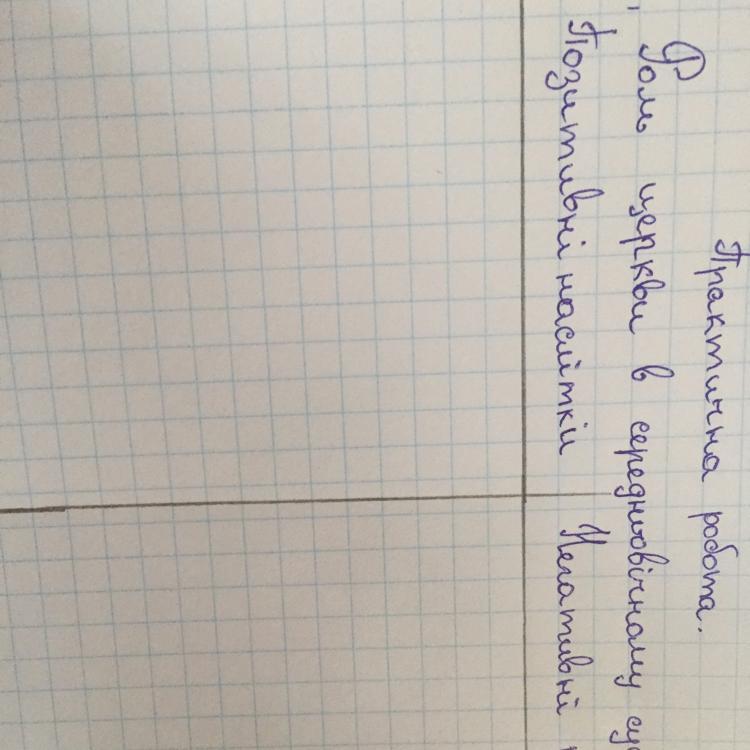 Практична робота.
Роль церкви в середньовічному су
Позитивні наслітки Негативні